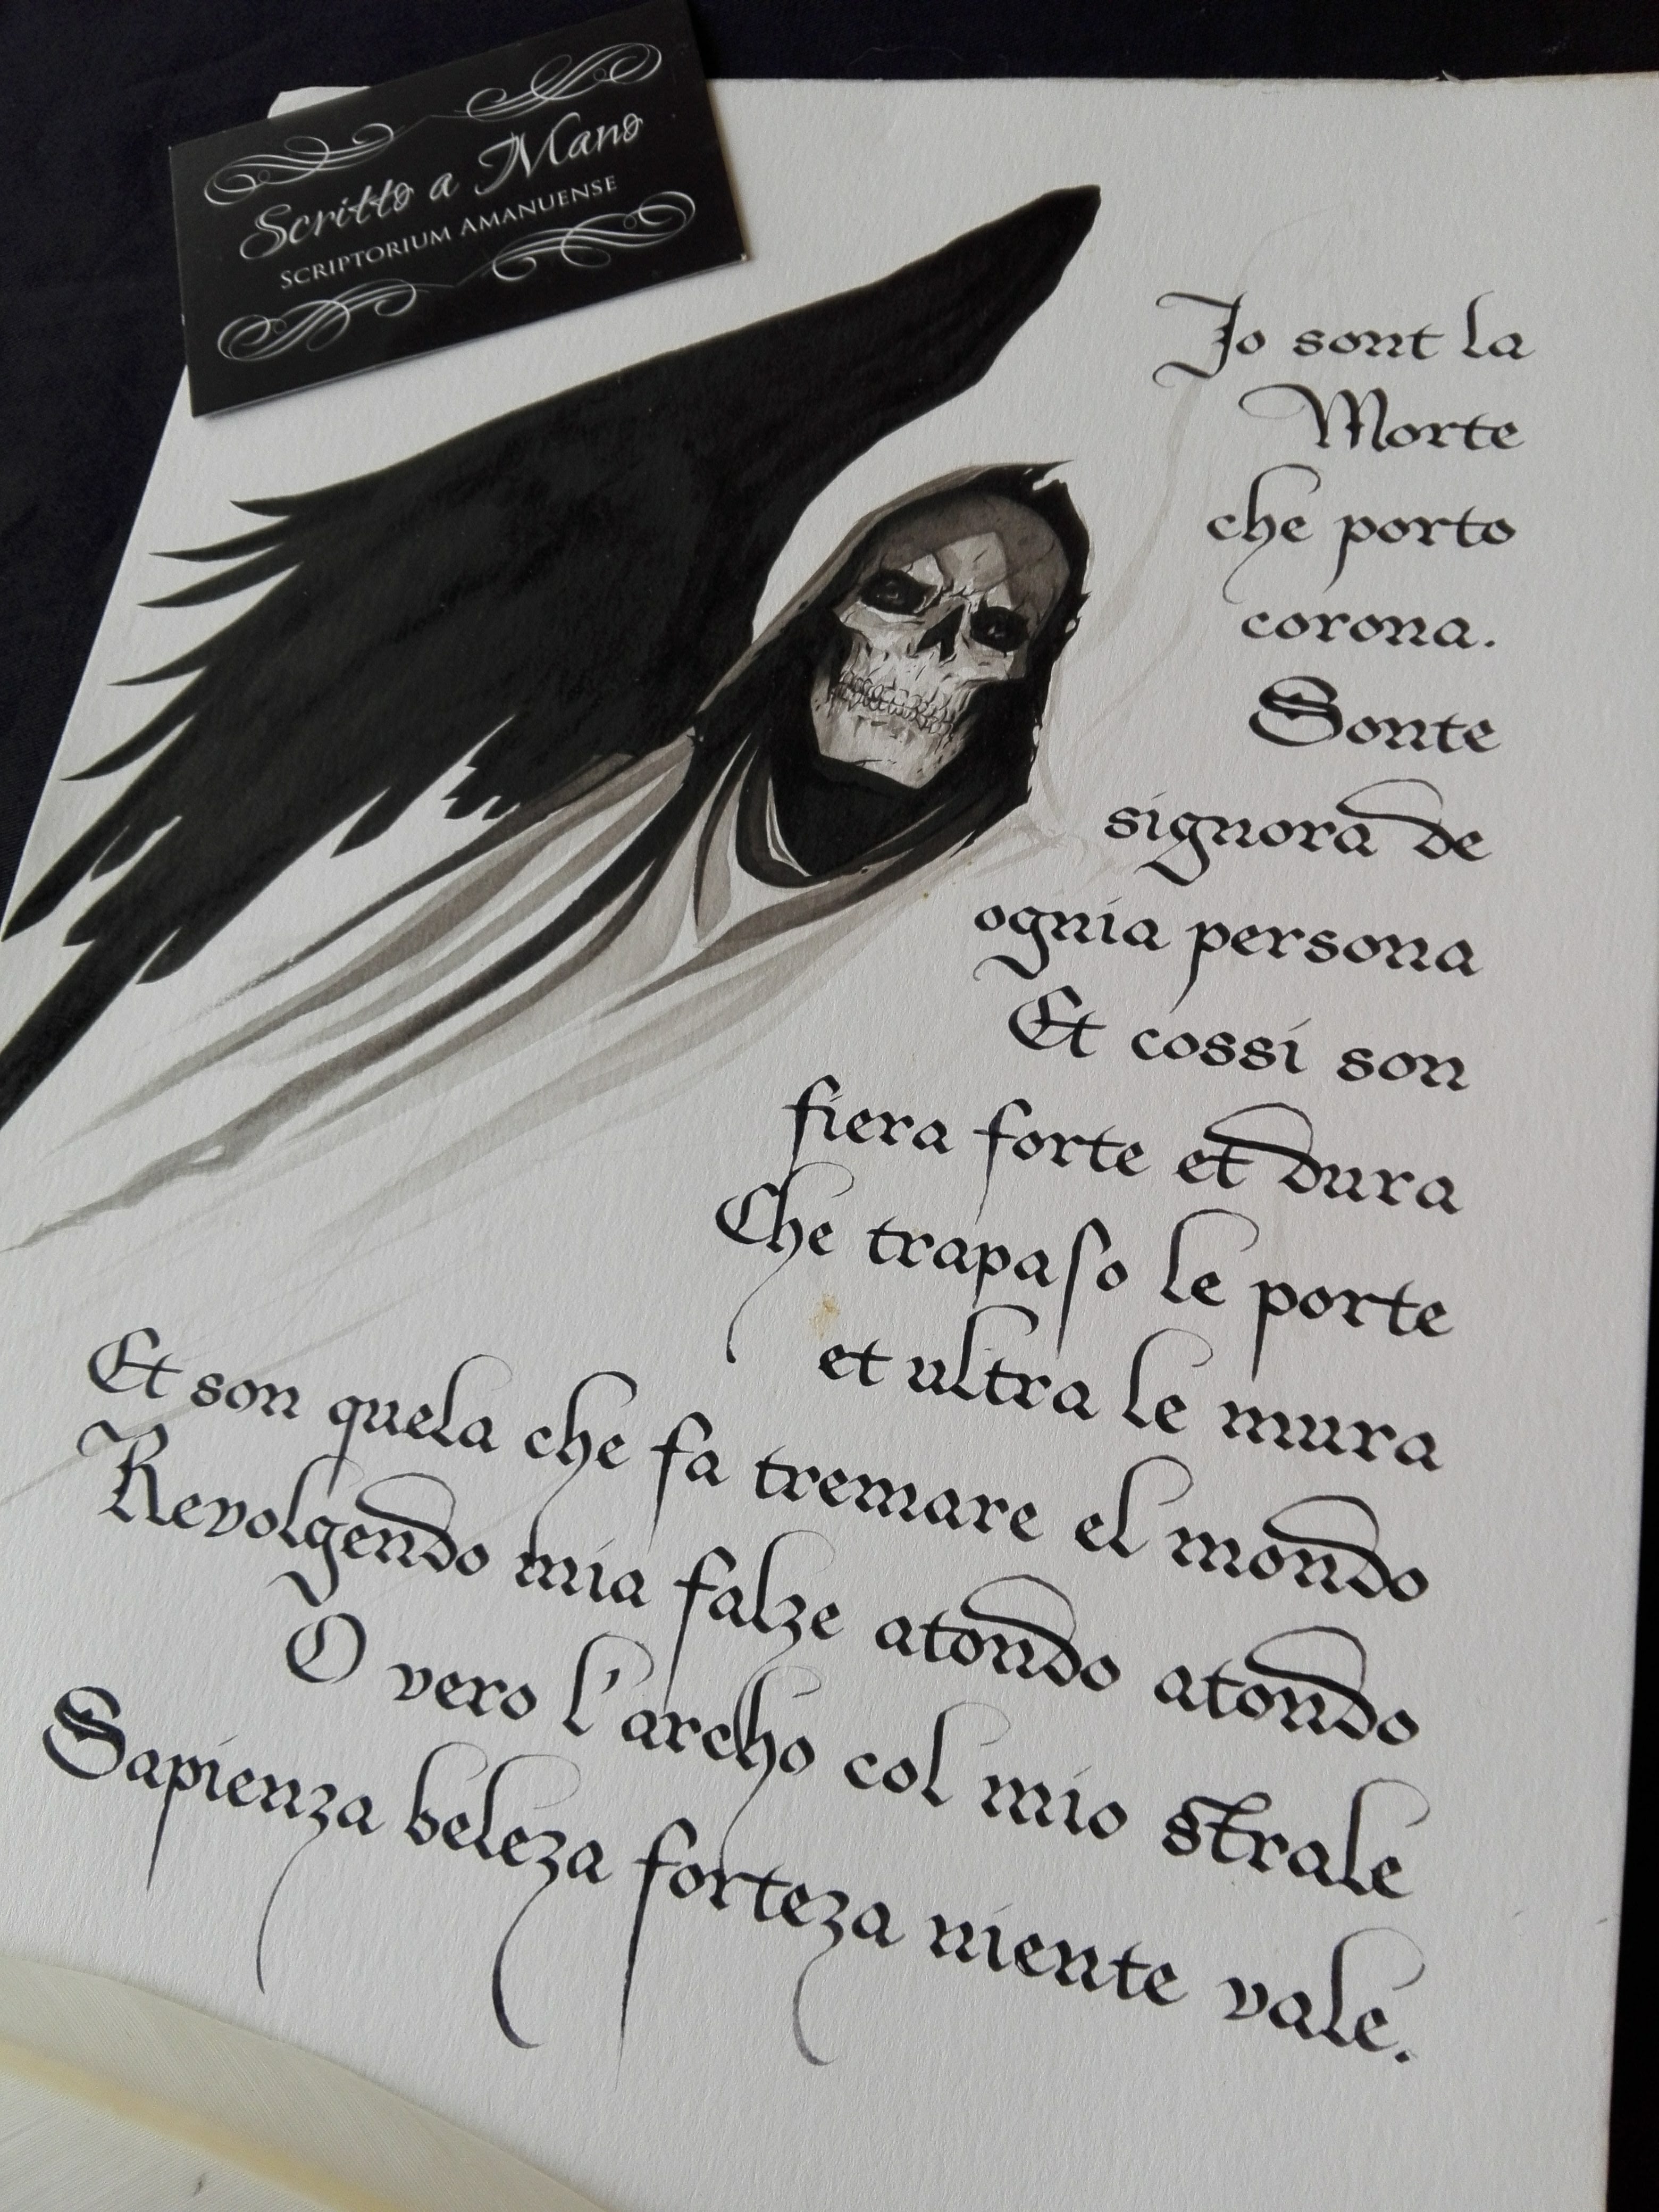 Scritto a Mano
SCRIPTORIUM AMANUENSE
Io sont la
Morte
che porto
corona.
Sonte
signora de
ognia persona
Et cossi son
fiera forte et dura
Che trapaſo le porte
et ultra le mura
Et son quela che fa tremare el mondo
Revolgendo mia falze atondo atondo
O vero l'archo col mio strale
Sapienza beleza forteza niente vale.